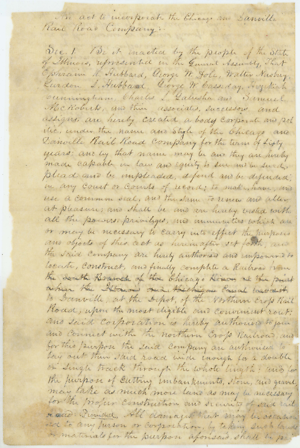 An act to incorporate the Chicago and Danville
Rail Road Company
Sec 1 Be it enacted by the people of the State
of Illinois, represented in the General Assembly, That
Hubbard, George W. Gole,
Gurdon S. Hubbard, George W. Cassedy,
Cunningham Charles and Samuel
and their associates, successors, and
assigns are hereby created a body corporate and pol
itic under the name and style of the Chicago and
Danville Rail Road Company for the term of sixty
years, and by that name may be and they are hereby
made capable in law and equity to sue and be sued,
plead and be impleaded, defend and be defended
in any Court or Courts of record; to make, have and
use a common seal, and the same to renew and alter
at pleasure; and shall be and are hereby vested with
all the powers privileges and immunities which are
or may be necessary to carry into effect the purposes
and objects of this act as hereinafter set forth, and
the said Company are hereby authorised and empowered to
locate, construct, and finally complete a Railroad from
the South Branch of the Chicago River at the point
where the Illinois and Michigan Canal
to Danville, at the Depot, of the Northern Cross Rail
Road, upon the most eligible and convenient route;
and said Corporation is hereby authorised to join
and connect with the Northern Cross Railroad, and
for this purpose the said Company are authorised to
lay out their said road wide enough for a double
or single track through the whole length: and for
the purpose of cutting embankments, stone and gravel
may take as much more land as may be necessary
for the proper construction and security of said Rail
Road Provided All damages that may be occasion
ed to any person or corporation by taking such lands
or materials for the purpose aforesaid shall be